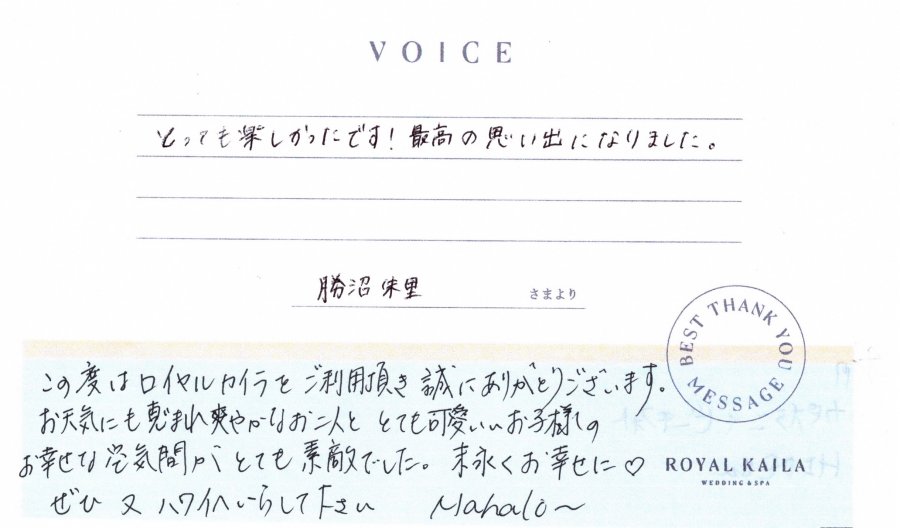 VOICE
とっても楽しかったです！最高の思い出になりました。
勝沼 朱里 さまより
BEST THANK YOU MESSAGE
この度はロイヤルカイラをご利用頂き誠にありがとうございます。
お天気にも恵まれ爽やかなお二人ととても可愛いいお子様の
お幸せな空気間がとても素敵でした。末永くお幸せに♡
ROYAL KAILA
WEDDING & SPA
ぜひ又ハワイへいらして下さい Mahalo〜